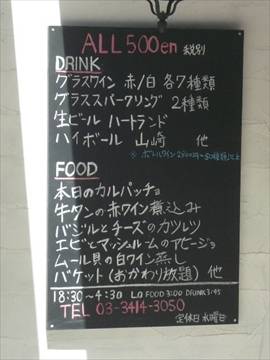 ALL 500en 税別
DRINK
グラスワイン 赤/白 各7種類
グラススパークリング 2種類
生ビール ハートランド
ハイボール 山崎 他
※ボトルワイン
FOOD
本日のカルパッチョ
牛タンの赤ワイン煮込み
バジルとチーズのカツレツ
エビとマッシュルームのアヒージョ
ムール貝の白ワイン蒸し
バケット (おかわり放題) 他
18:30〜4:30 LO FOOD 3:00 DRUNK 3:45
TEL 03-3414-3050
定休日 水曜日